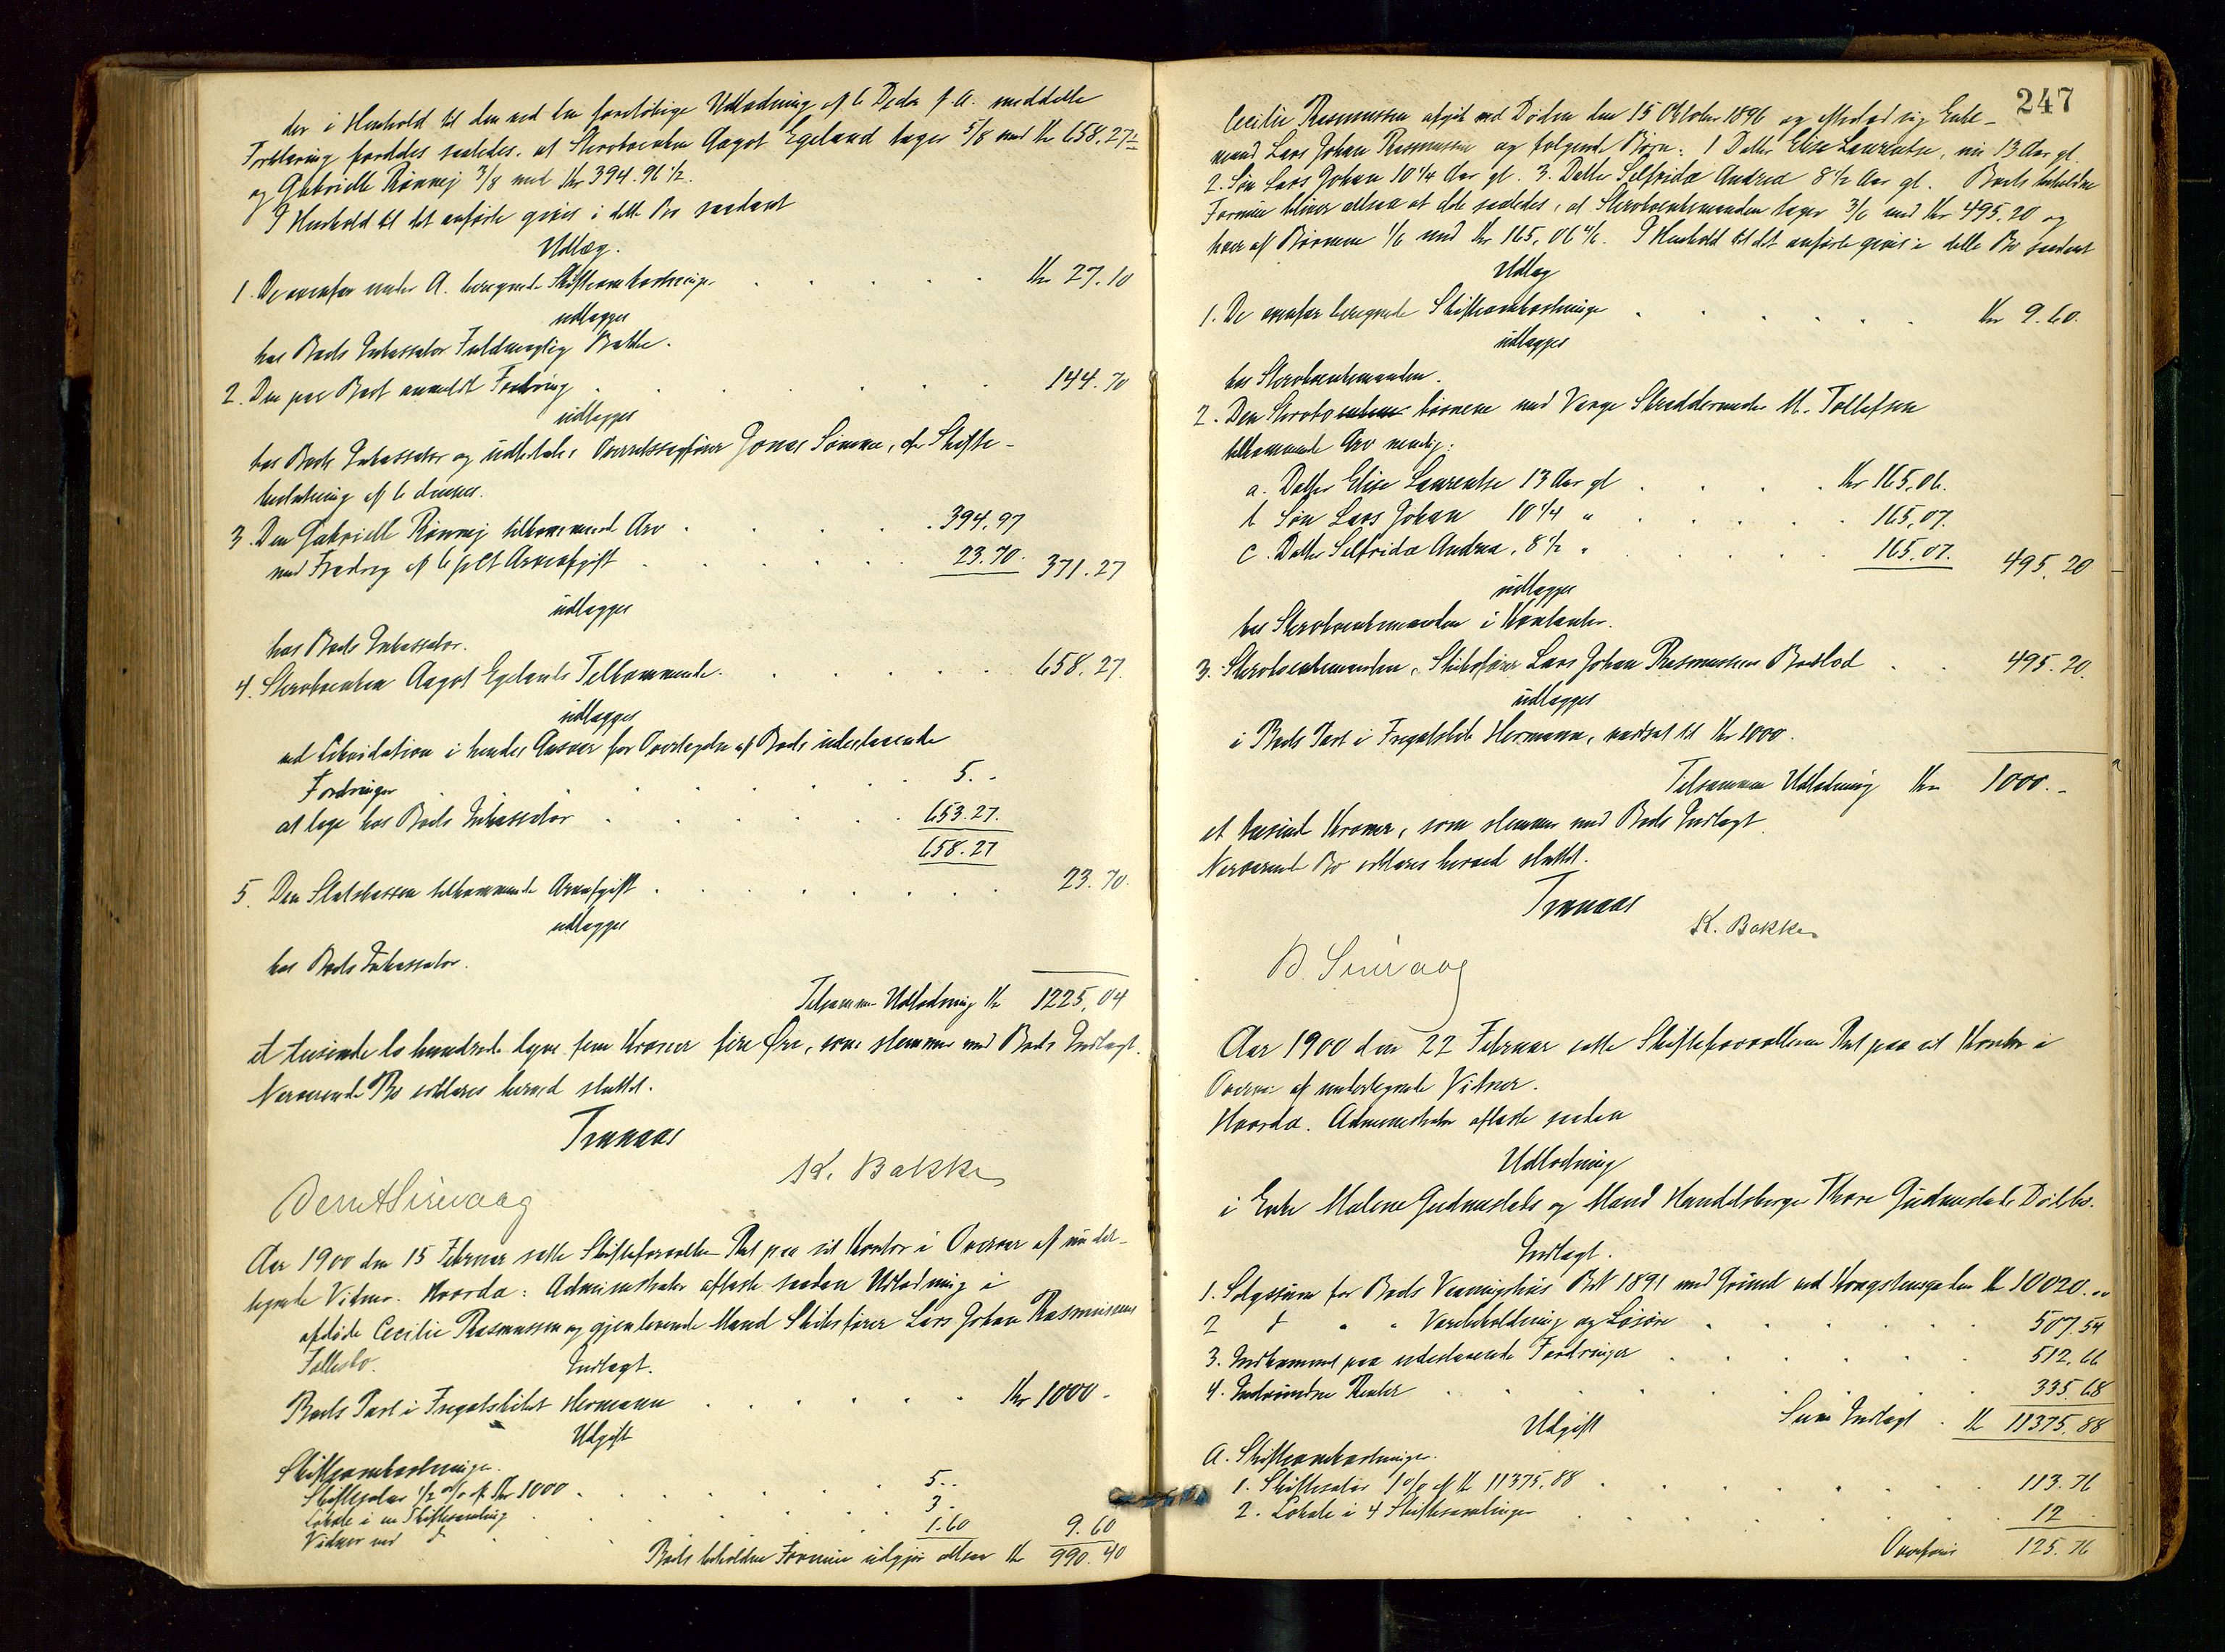 der i Henhold til den ved den foreløbige Udlodning af 6 Decbr f. A. meddelte
Forklaring fordeles saaledes, at Stervboenken Aagot Egeland tager 5/8 med Kr 658.27
og Gabrielle Rønnej 3/8 med Kr 394.96 1/2.
I Henhold til det anførte gives i dette Bo saadant
Udlæg.
1. De ovenfor under A. beregnede Skifteomkostninger Kr 27.10
udlægges
hos Boets Inkassator Fuldmægtig Bakke.
2. Den paa Boet anmeldt Fordring 144.70
udlægges
hos Boets Inkassator og udbetales Overretssagfører Jonas Sømme, cfr Skifte-
beslutning af 6 dennes.
3. Den Gabrielle Rønnej tilkommende Arv 394.97
med Fradrag af 6 pCt Arveafgift 23.70. 371.27
udlægges
hos Boets Inkassator.
4. Stervboenken Aagot Egelands Tilkommende 658.27.
udlægges
ved Likvidation i hendes Ansvar for Overtagelse af Boets udestaaende
Fordringer 5.-
at tage hos Boets Inkassator 653.27.
658.27
5. Den Statskassen tilkommende Arveafgift 23.70.
udlægges
hos Boets Inkassator.
Tilsammen Udlodning Kr 1225,04
et tusinde to hundrede tyve fem Kroner fire Øre, som stemmer med Boets Indtægt.
Nærværende Bo erklæres herved sluttet.
Trønaas
K. Bakke
Bernt Sirevaag
Aar 1900 den 15 Februar satte Skifteforvalteren Ret paa sit Kontor i Overvær af under-
tegnede Vidner. Hvorda: Administrator afsluttede saadan Udlodning i
afdøde Cecilie Rasmussen og gjenlevende Mand Skibsfører Lars Johan Rasmussens
Fællesbo.
Indtægt.
Boets Part i Fregatskibet Hermann Kr 1000.-
Udgift
Skifteomkostninger.
Skiftesalær 1/2 o/o af Kr 1000 5.-
Lokale i en Skiftesamling 3.
Vidner ved do 1.60 9.60
Boets beholdne Formue udgjør altsaa Kr 990.40
247
Cecilie Rasmussen afgik ved Døden den 15 Oktober 1896 og efterlod sig Enke-
mand Lars Johan Rasmussen og følgende Børn: 1 Datter Elise Laurentse, nu 13 Aar gl.
2. Søn Lars Johan 10 1/4 Aar gl. 3. Datter Selfrida Andrea 8 1/2 Aar gl. Boets beholdne
Formue bliver altsaa at dele saaledes, at Stervboenkemanden tager 3/6 med Kr 495.20 og
hver af Børnene 1/6 med Kr 165,06 4/6. I Henhold til det anførte gives i dette Bo saadant
Udlæg
1. De ovenfor beregnede Skifteomkostninger Kr 9.60.
udlægges
hos Stervboenkemanden.
2. Den Stervbo børnene med Værge Skræddermester M. Tollefsen
tilkommende Arv nemlig:
a. Datter Elise Laurentse 13 Aar gl Kr 165,06.
b Søn Lars Johan 10 1/4 " 165,07.
c. Datter Selfrida Andrea, 8 1/2 " 165.07. 495.20
udlægges
hos Stervboenkemanden i Kontanter.
3. Stervboenkemanden, Skibsfører Lars Johan Rasmussens Boeslod 495.20.
udlægges
i Boets Part i Fregatskib Hermann, værdsat til Kr 1000.
Tilsammen Udlodning Kr 1000.-
et tusinde Kroner, som stemmer med Boets Indtægt
Nærværende Bo erklæres herved sluttet.
Trønaas
K. Bakke
B. Sirevaag
Aar 1900 den 22 Februar satte Skifteforvalteren Ret paa sit Kontor i
Overvær af undertegnede Vidner.
Hvorda. Administrator afsluttede saadan
Udlodning
i Enke Malene Gudmestads og Mand Handelsborger Thore Gudmestads Dødsbo.
Indtægt.
1. Salgssum for Boets Vaaningshus Brt 1891 med Grund ved Kongstensgaden Kr 10020.-
2 do " " Varebeholdning og Løsøre 507.54
3. Indkommet paa udestaaende Fordringer 512.66
4. Indvundne Renter 335.68
Sum Indtægt Kr 11375.88
Udgift
A. Skifteomkostninger.
1. Skiftesalær 1 o/o af Kr 11375,88 113.76
2. Lokale i 4 Skiftesamlinger 12
Overføres 125.76